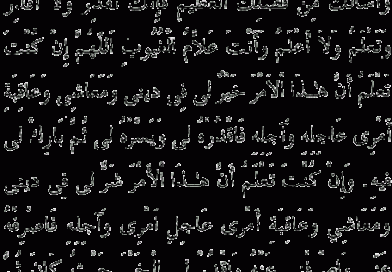 وَأَسْأَلُكَ مِنْ فَضْلِكَ الْعَظِيمِ فَإِنَّكَ تَقْدِرُ وَلَا أَقْدِرُ
وَتَعْلَمُ وَلَا أَعْلَمُ وَأَنْتَ عَلَّامُ الْغُيُوبِ اَللَّهُمَّ إِنْ كُنْتَ
تَعْلَمُ أَنَّ هَـٰذَا الْأَمْرَ خَيْرٌ لِى فِى دِينِى وَمَعَاشِى وَعَاقِبَةِ
أَمْرِى عَاجِلِهِ وَآجِلِهِ فَاقْدُرْهُ لِى وَيَسِّرْهُ لِى ثُمَّ بَارِكْ لِى
فِيهِ. وَإِنْ كُنْتَ تَعْلَمُ أَنَّ هَـٰذَا الْأَمْرَ شَرٌّ لِى فِى دِينِى
وَمَعَاشِى وَعَاقِبَةِ أَمْرِى عَاجِلِ أَمْرِى وَآجِلِهِ فَاصْرِفْهُ